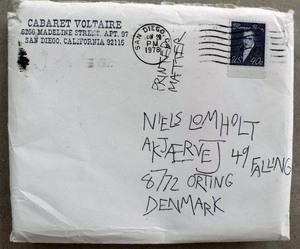 CABARET VOLTAIRE
6266 MADELINE STREET, APT. 97
SAN DIEGO, CALIFORNIA 92115
SAN DIEGO
PM
1978
PRINTED
MATTER
US 40c
NIELS LOMHOLT
AKJÆRVEJ 49 FALLING
8772 ORTING
DENMARK